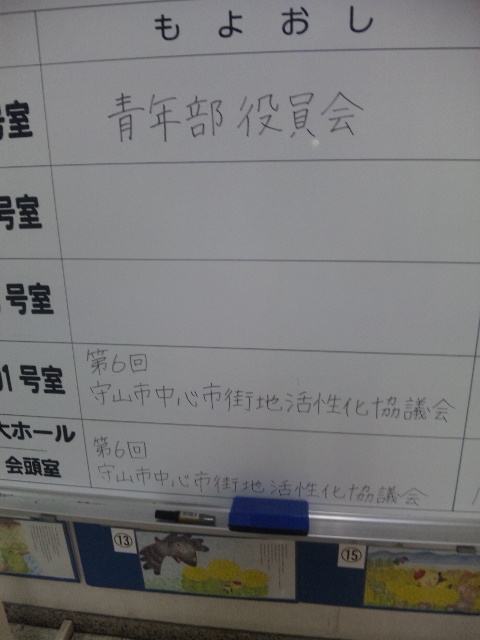 もよおし
号室
青年部 役員会
号室
号室
01号室
第6回
守山市中心市街地活性化協議会
大ホール
会頭室
第6回
守山市中心市街地活性化協議会
⑬
⑮